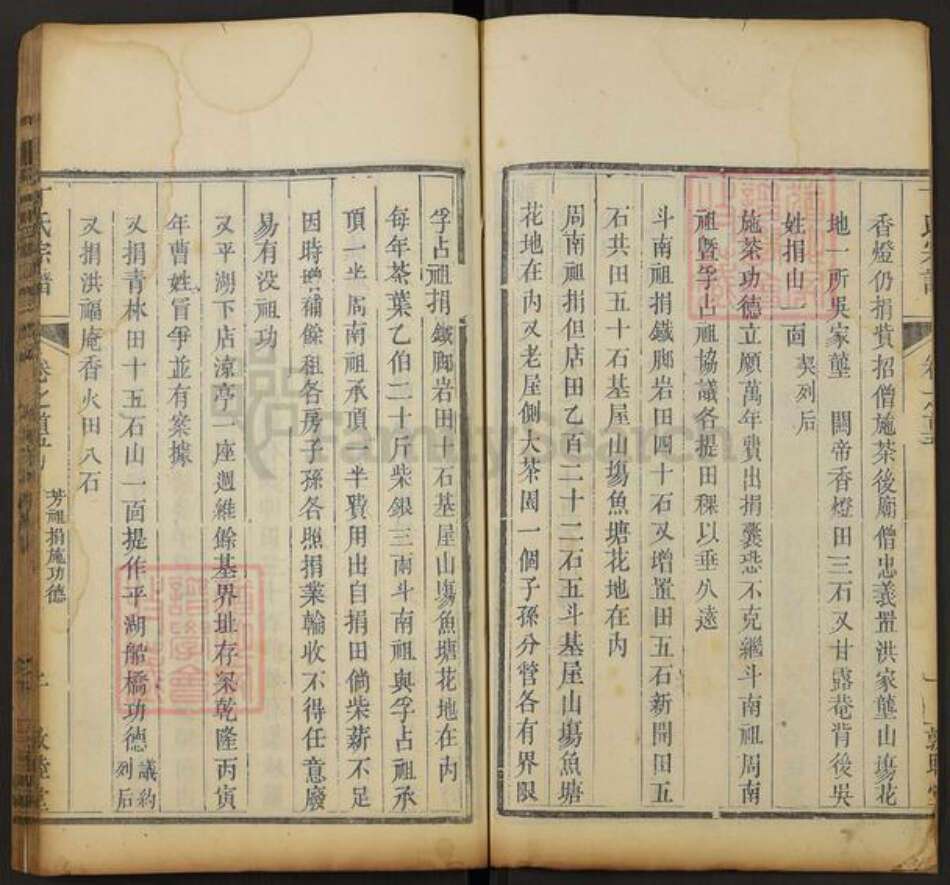 香燈仍捐貲招僧施茶後廟僧忠義置洪家壟山塲花
地一所吳家壟 關帝香燈田三石又甘露菴背後吳
姓捐山一面契列后
施茶功德立願萬年費出捐囊恐不克繼斗南祖周南
祖暨孚占祖協議各提田稞以垂久遠
斗南祖捐鐵郎岩田四十石又增置田五石新開田五
石共田五十石基屋山塲魚塘花地在內
周南祖捐但店田乙百二十二石五斗基屋山塲魚塘
花地在內又老屋側大茶園一個子孫分管各有界限
孚占祖捐鐵郎岩田十石基屋山塲魚塘花地在內
每年茶葉乙伯二十斤柴銀三兩斗南祖與孚占祖承
頂一半周南祖承頂一半費用出自捐田倘柴薪不足
因時增補餘租各房子孫各照捐業輪收不得任意廢
易有没祖功
又平湖下店涼亭一座週維餘基界址存案乾隆丙寅
年曹姓冒爭並有案據
又捐青林田十五石山一面提作平湖船橋功德議約列后
又捐洪福庵香火田八石
氏宗譜
卷之首
芳祖捐施功德
敦睦堂
FamilySearch